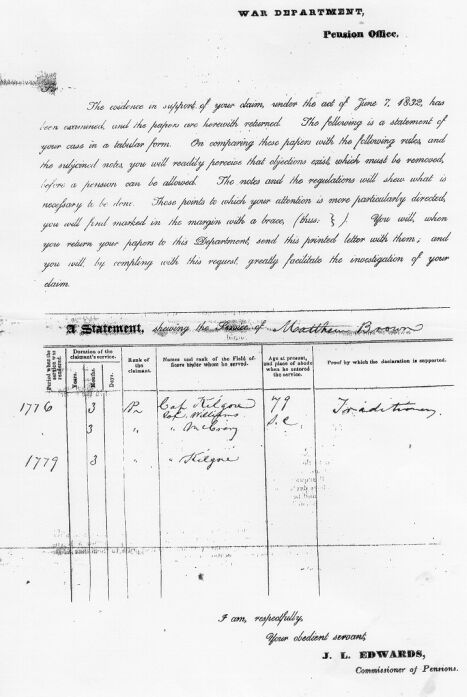 WAR DEPARTMENT,
Pension Office.
The evidence in support of your claim, under the act of June 7, 1832, has
been examined, and the papers are herewith returned. The following is a statement of
your case in a tabular form. On comparing these papers with the following rules, and
the subjoined notes, you will readily perceive that objections exist, which must be removed,
before a pension can be allowed. The notes and the regulations will shew what is
necessary to be done. Those points to which your attention is more particularly directed,
you will find marked in the margin with a brace, (thus: } ). You will, when
you return your papers to this Department, send this printed letter with them; and
you will, by complying with this request, greatly facilitate the investigation of your
claim.
A Statement, shewing the Service of Matthew Brown
Period when the service was rendered.
Duration of the claimant's service.
Years.
Months.
Days.
Rank of the claimant.
Names and rank of the Field officers under whom he served.
Age at present, and place of abode when he entered the service.
Proof by which the declaration is supported.
1776 3 Pr Cap Kilgore 79 Traditionary
Col. Williams S.C.
3 " " McCrary
1779 3 " " Kilgore
I am, respectfully,
Your obedient servant,
J. L. EDWARDS,
Commissioner of Pensions.